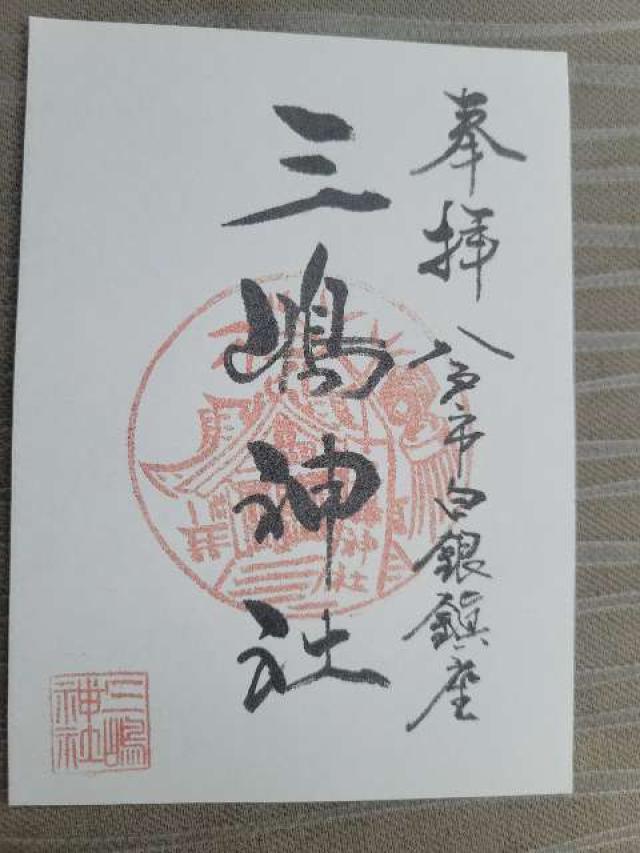 奉拝 八戸市白銀鎮座
三嶋神社
三嶋神社